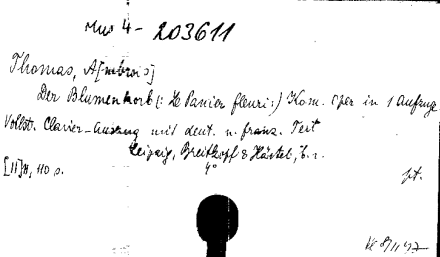 Mus 4 - 203611
Thomas, A[mbrois]
Der Blumenkorb (: Le Panier fleuri :) Kom. Oper in 1 Aufzuge
Vollst. Clavier-Auszug mit deut. u. franz. Text
Leipzig, Breitkopf & Härtel,
[II]8, 110 s. 4°